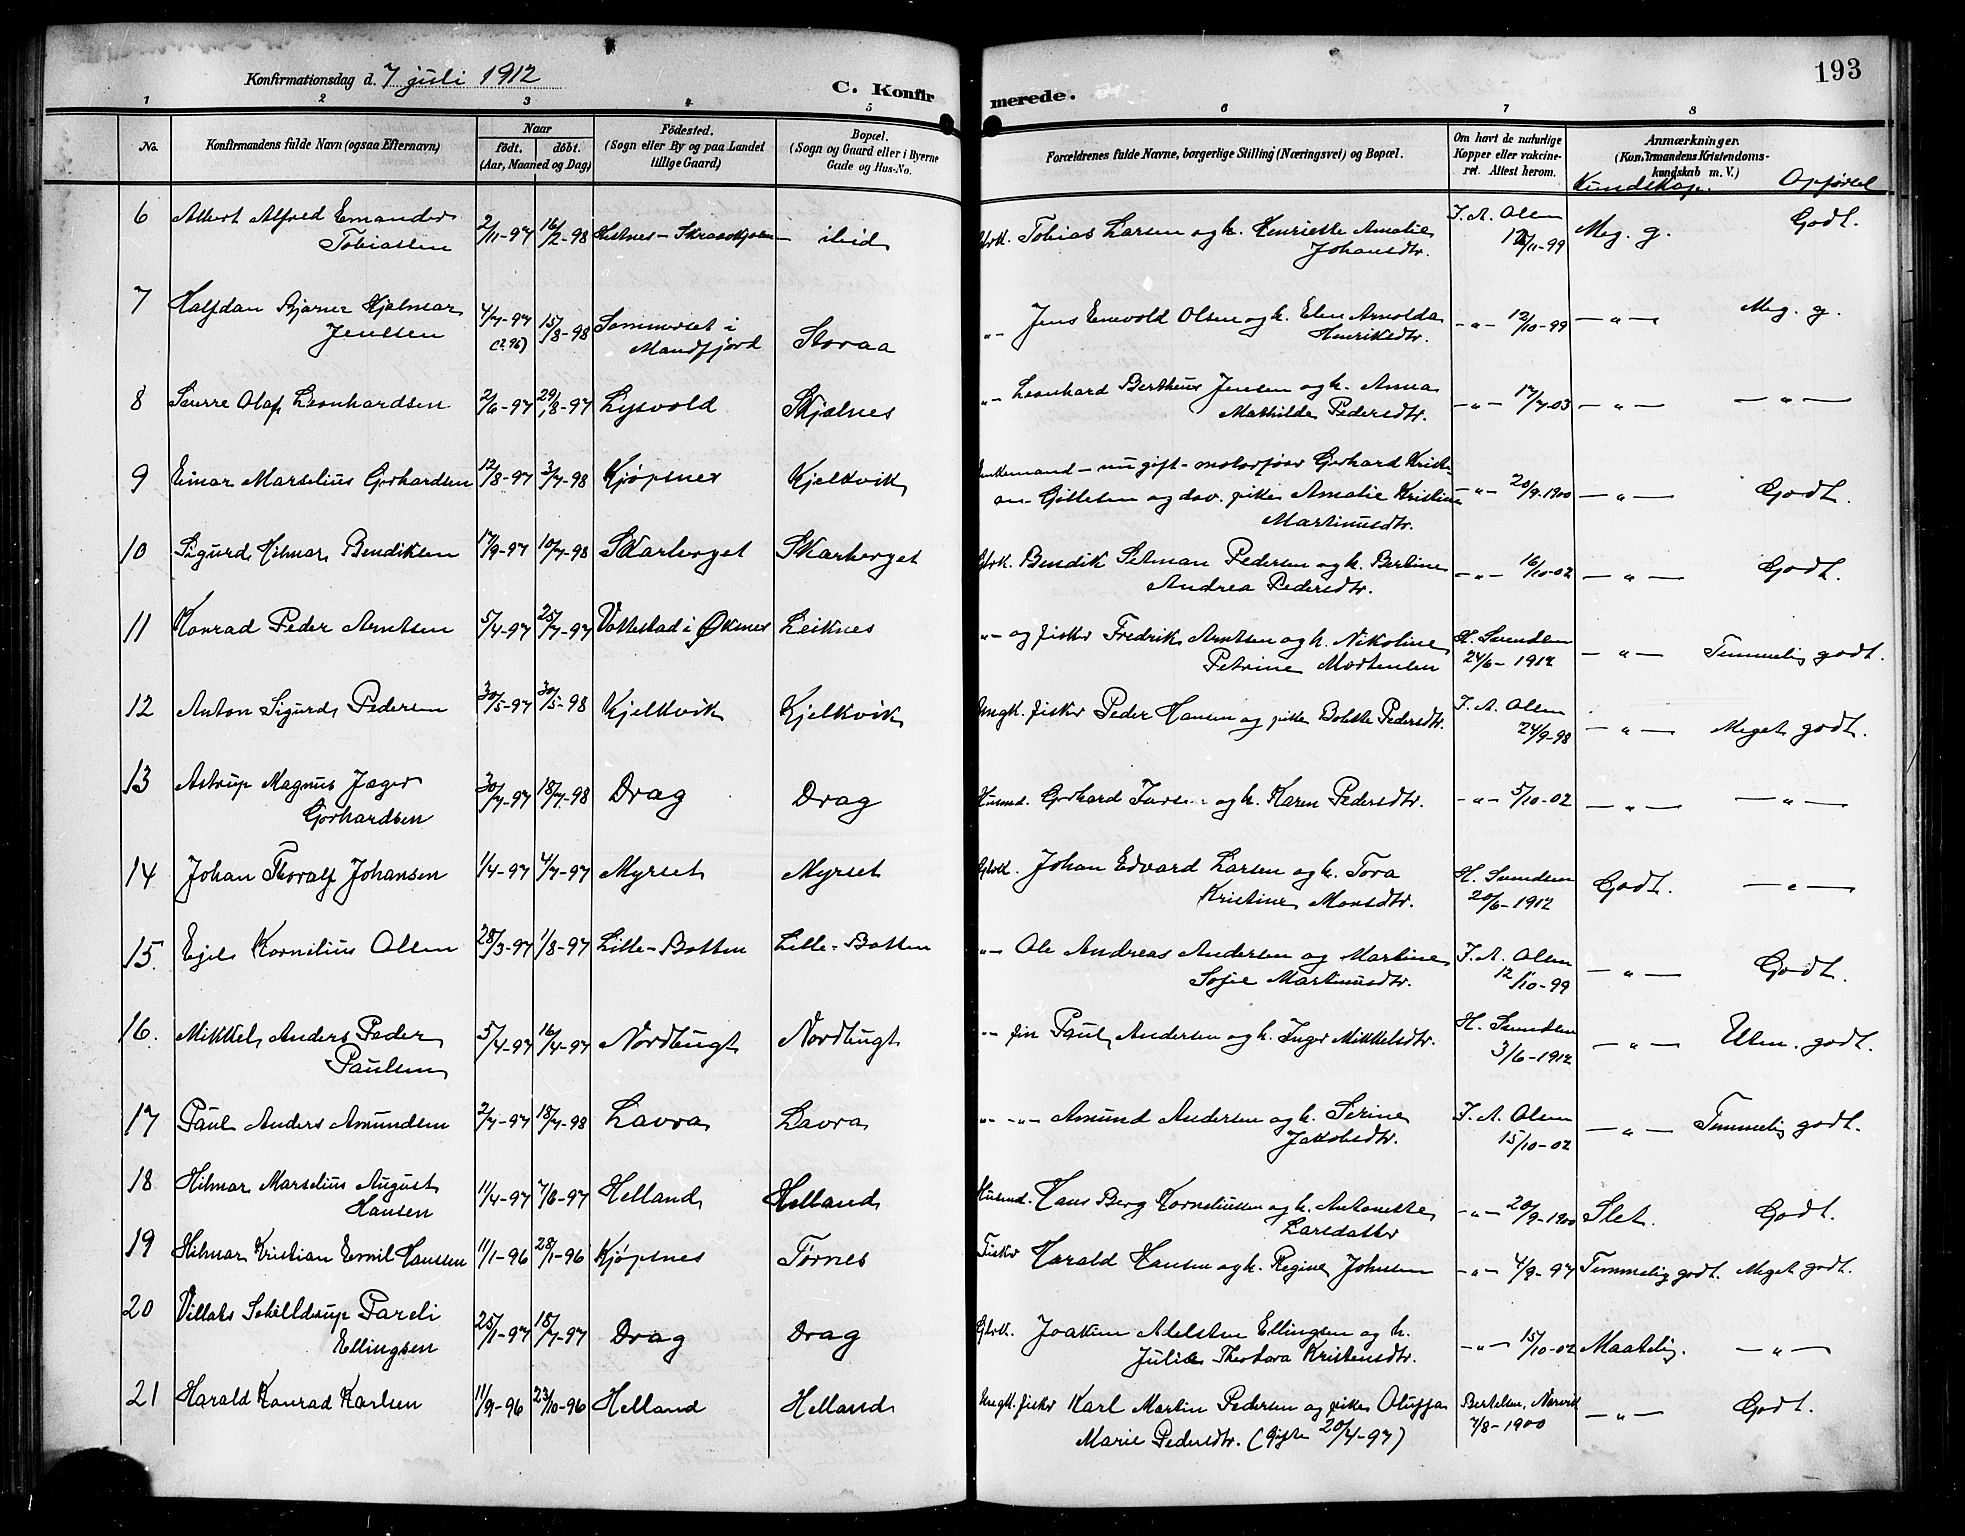 193
Konfirmationsdag d. 7 juli 1912
C. Konfirmerede.
1 2 3 4 5 6 7 8
No. Konfirmandens fulde Navn (ogsaa Efternavn) Naar født. døbt. (Aar, Maaned og Dag) Fødested. (Sogn eller By og paa Landet tillige Gaard) Bopæl. (Sogn og Gaard eller i Byerne Gade og Hus-No. Forældrenes fulde Navne, borgerlige Stilling (Næringsvei) og Bopæl. Om havt de naturlige Kopper eller vakcineret. Attest herom. Anmærkninger. (Konfirmandens Kristendomskundskab m. V.) Kundskap. Opførsel
6 Albert Alfred Emander Tobiassen 2/11-97 16/2-98 ibid Gbrk. Tobias Larsen og h. Henriette Amalie Johansdtr. J. A. Olsen /11-99 Meg. g. Godt.
7 Halfdan Bjarner Hjalmar Jenssen 4/7-97 (? 96) 15/8-98 Sommerset i Mandfjord Storaa -"- Jens Enevold Olsen og h. Elen Arnolda Henriksdtr. -"- 12/10-99 -"- Meg. g.
8 Sverre Olaf Leonhardsen 2/6-97 29/8-97 Lysvold Skjelnes -"- Leonhard Bertheus Jensen og h. Anna Mathilde Pedersdtr. -"- 17/7-03 -"- -"-
9 Einar Marselius Gerhardsen 12/8-97 3/7-98 Kjøpsnes Kjelkvik Enkemand - nu gift - motorfører Gerhard Kristian Gittesen og dav. pike Amalie Kristine Martinusdtr. -"- 20/9-1900 -"- Godt.
10 Sigurd Hilmar Bendiksen 17/9-97 10/7-98 Skarberget Skarberget Gbrk. Bendik Setman Pedersen og h. Bertine Andrea Pedersdtr. -"- 16/10-02 -"- Godt.
11 Konrad Peder Arntsen 5/4-97 25/7-97 Vottestad i Øksnes Leiknes -"- og fisker Fredrik Arntsen og h. Nikoline Petrine Mortensen H. Svendsen 24/6-1912 -"- Temmelig godt.
12 Anton Sigurd Pedersen 30/5-97 30/5-98 Kjelkvik Kjelkvik Ungk. fisker Peder Hansen og pike Bolette Pedersdtr. J. A. Olsen 24/9-98 -"- Meget godt.
13 Astrup Magnus Jæger Gerhardsen 30/7-97 18/7-98 Drag Drag Husmd. Gerhard Iversen og h. Karen Pedersdtr. -"- 5/10-02 -"- -"-
14 Johan Thoralf Johansen 1/4-97 4/7-97 Myrset Myrset Gbrk. Johan Edvard Larsen og h. Tora Kristine Monsdtr. H. Svendsen 20/6-1912 Godt. -"-
15. Ejel Kornelius Olsen 28/3-97 1/8-97 Lille-Botten Lille-Botten -"- Ole Andreas Andersen og Martine Sofie Martinusdtr. J. A. Olsen 12/10-99 -"- Godt.
16. Mikkel Anders Peder Paulsen 5/4-97 16/4-97 Nordbugt Nordbugt -"- fin Paul Andersen og h. Inger Mikkelsdtr. H. Svendsen 3/6-1912 -"- Utm. godt.
17 Paul Anders Amundsen 2/7-97 18/7-98 Lavra Lavra -"- -"- Amund Andersen og h. Serine Jakobsdtr. J. A. Olsen 15/10-02 -"- Temmelig godt.
18 Hilmar Marselius August Hansen 11/4-97 7/8-97 Helland Helland Husmd. Hans Berg Korneliussen og h. Antonette Larsdatter -"- 20/9-1900 Slet. Godt.
19 Hilmar Kristian Emil Hansen 11/1-96 28/1-96 Kjøpsnes Tørnes Fisker Harald Hansen og h. Regine Johnsen -"- 4/9-97 Temmelig godt. Meget godt.
20 Villads Schelldrup Pareli Ellingsen 25/1-97 18/7-97 Drag Drag Gbrk. Joakim Alelsten Ellingsen og h. Julie Theodora Kristensdtr. -"- 15/10-02 Maatelig. -"-
21 Harald Konrad Karlsen 11/9-96 23/10-96 Helland Helland Ungk. fisker Karl Martin Pedersen og pike Oluffa Marie Pedersdtr. (Gifte 20/4-97) Bertelsen, Narvik 7/8-1900 -"- Godt.